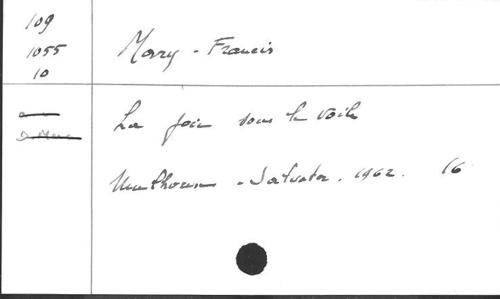 109
1055
10
Morry - Francis
La joie sous le voile
Mulhouse - Salvator. 1962. 16